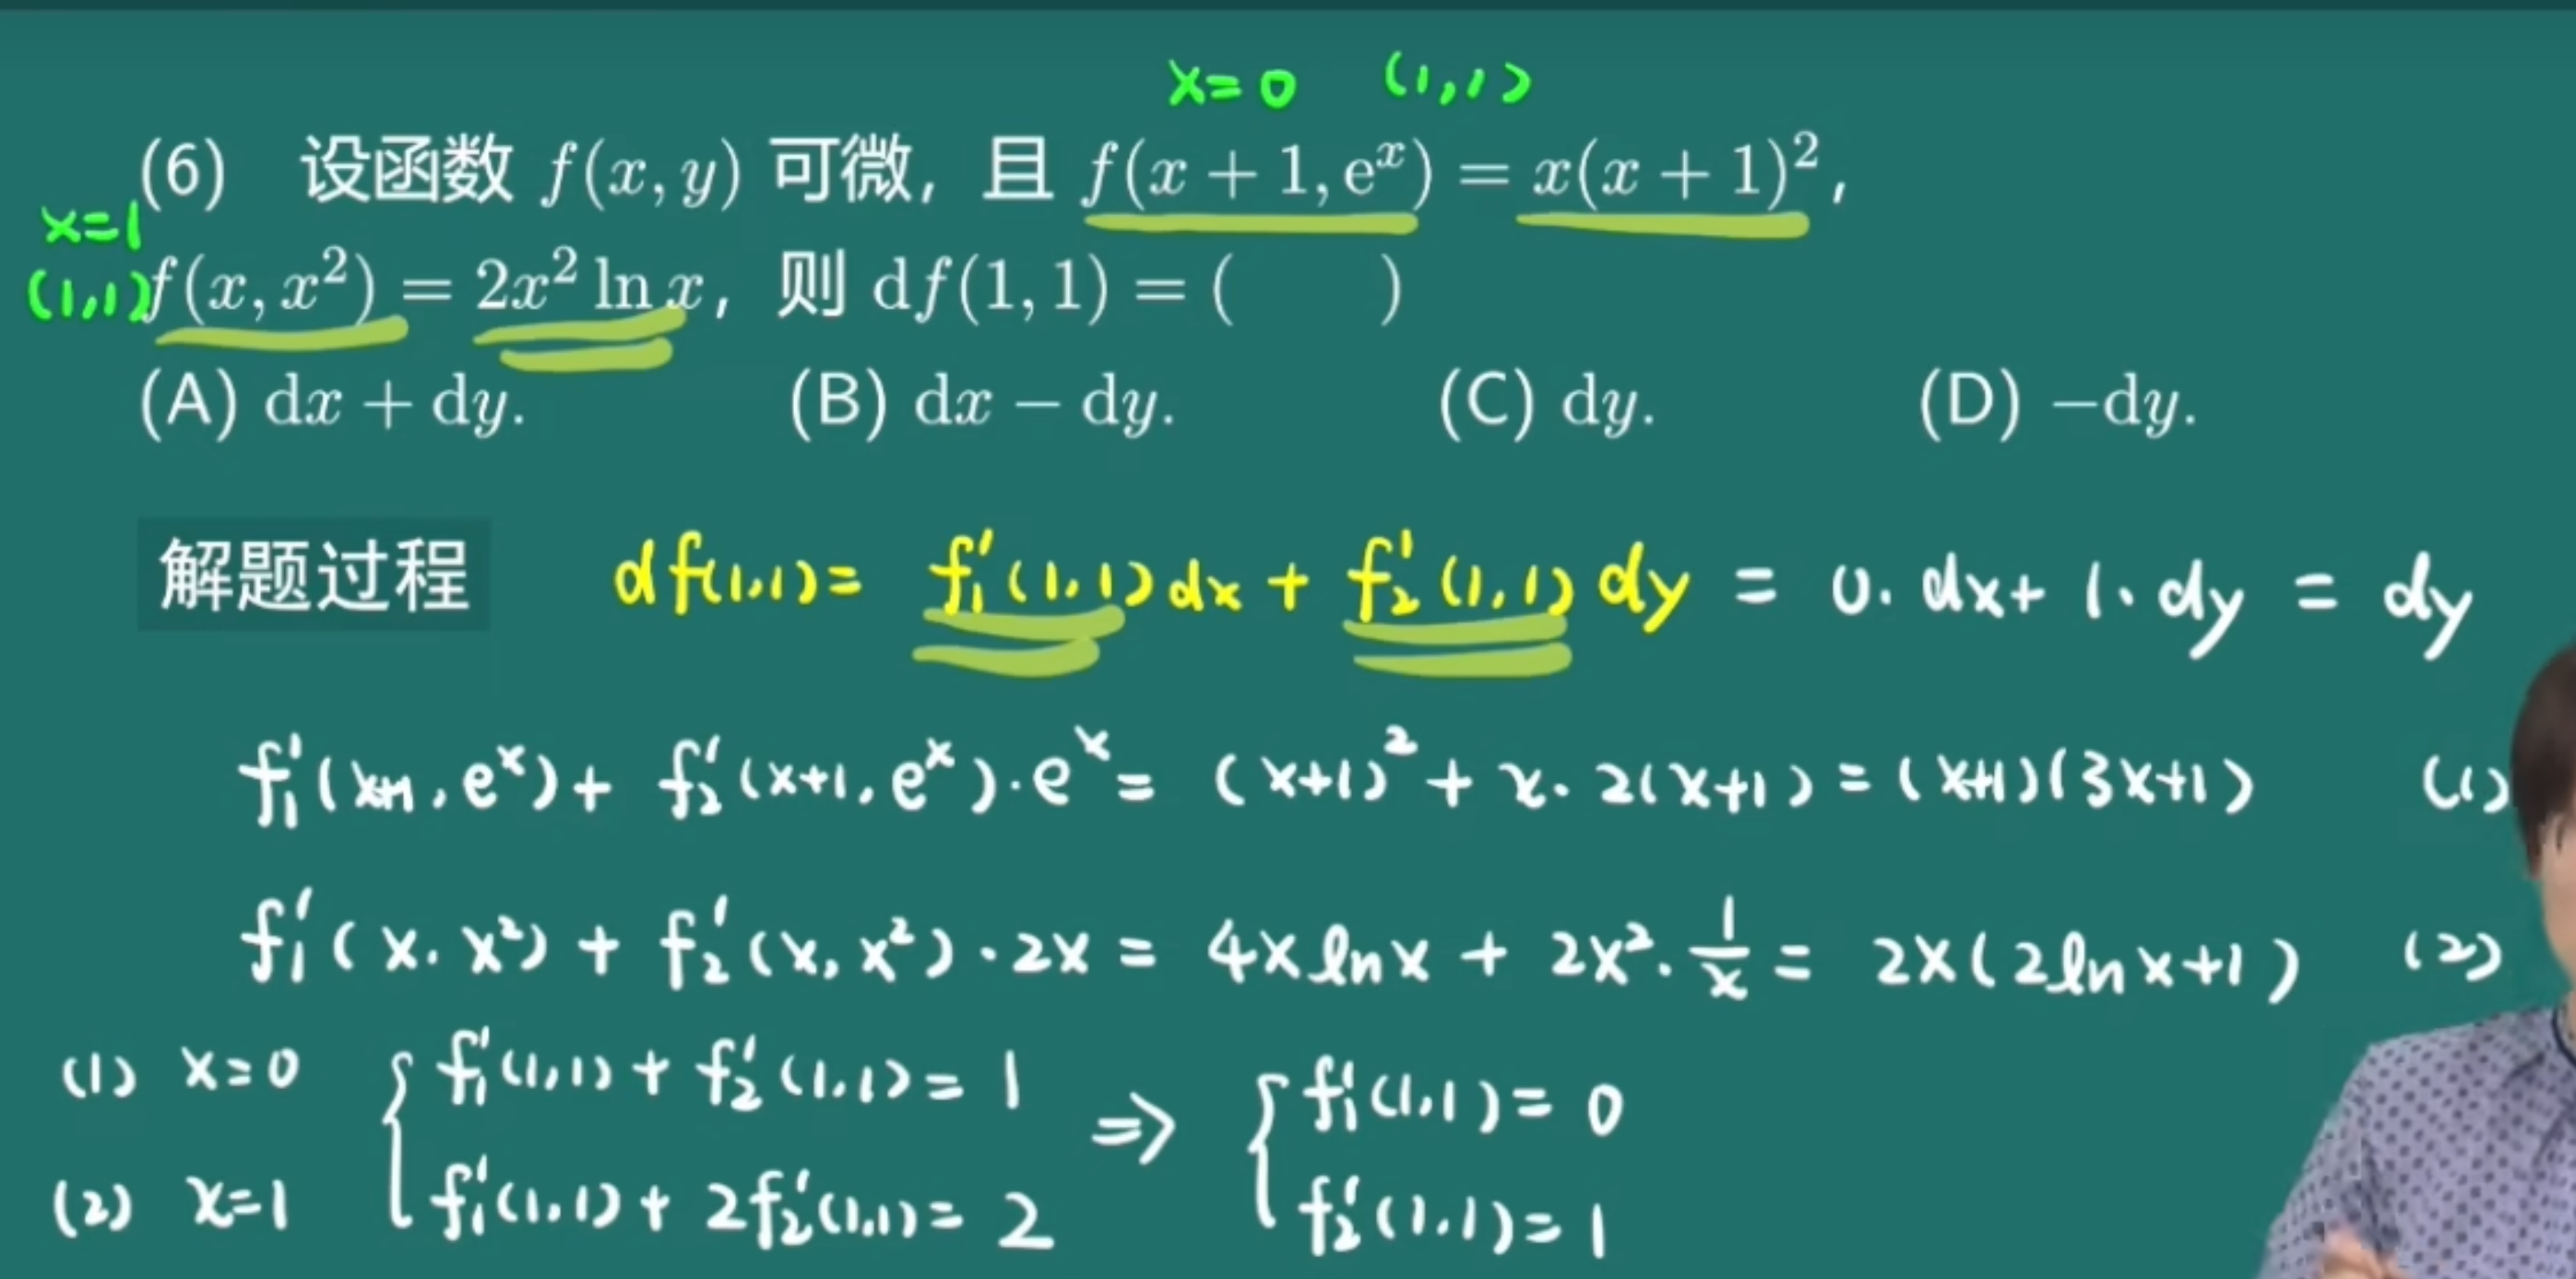 x=0 (1,1)
(6) 设函数 f(x, y) 可微，且 f(x + 1, eˣ) = x(x + 1)²，
x=1
(1,1) f(x, x²) = 2x² ln x，则 df(1, 1) = ( )
(A) dx + dy. (B) dx − dy. (C) dy. (D) −dy.
解题过程 df(1,1) = f₁′(1,1)dx + f₂′(1,1)dy = 0·dx + 1·dy = dy
f₁′(x+1, eˣ) + f₂′(x+1, eˣ)·eˣ = (x+1)² + x·2(x+1) = (x+1)(3x+1) (1)
f₁′(x, x²) + f₂′(x, x²)·2x = 4x ln x + 2x²·1/x = 2x(2ln x+1) (2)
(1) x=0 { f₁′(1,1) + f₂′(1,1) = 1 ⇒ { f₁′(1,1) = 0
(2) x=1 f₁′(1,1) + 2f₂′(1,1) = 2 f₂′(1,1) = 1